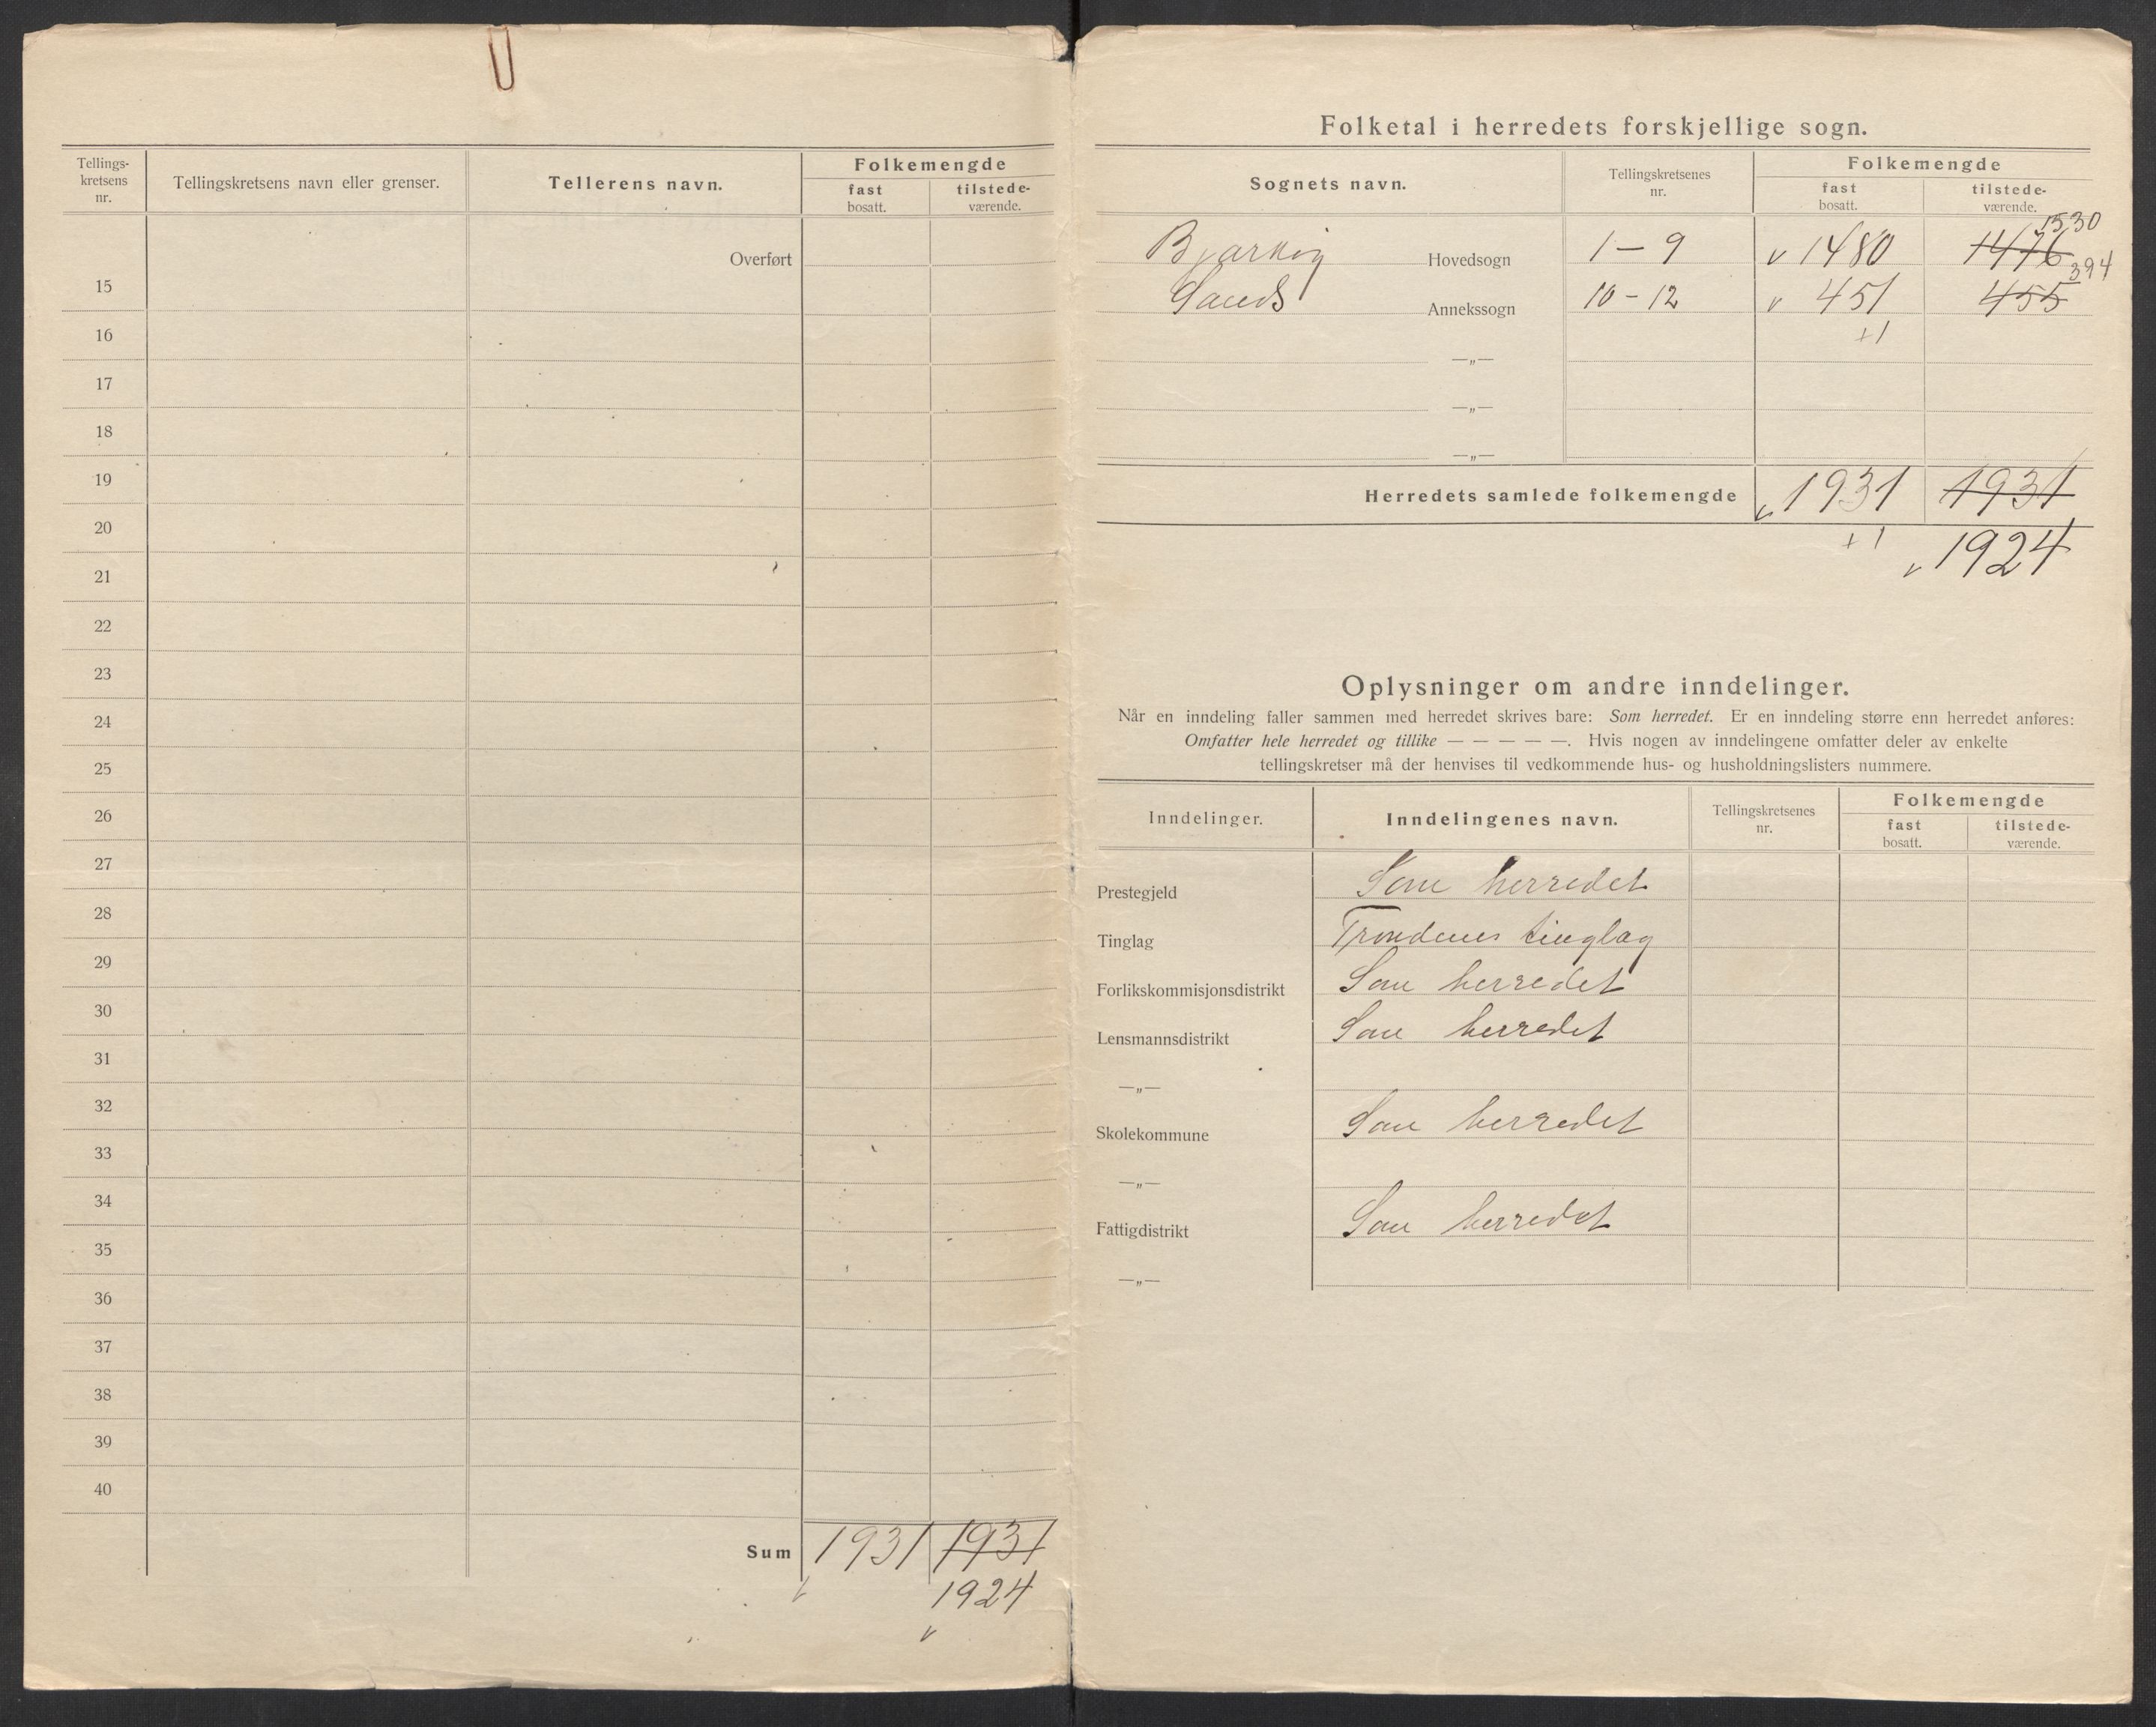 Tellings-
kretsens
nr.
Tellingskretsens navn eller grenser.
Tellerens navn.
Folkemengde
fast
bosatt.
tilstede-
værende.
Overført
15
16
17
18
19
20
21
22
23
24
25
26
27
28
29
30
31
32
33
34
35
36
37
38
39
40
Sum 1931 1931
1924
Folketal i herredets forskjellige sogn.
Sognets navn.
Tellingskretsenes
nr.
Folkemengde
fast
bosatt.
tilstede-
værende.
1530
Bjarkøy Hovedsogn 1-9 v 1480 1476
394
Sands Annekssogn 10-12 v 451 455
+1
—„—
—„—
—„—
Herredets samlede folkemengde v 1931 1931
+1
v 1924
Oplysninger om andre inndelinger.
Når en inndeling faller sammen med herredet skrives bare: Som herredet. Er en inndeling større enn herredet anføres:
Omfatter hele herredet og tillike — — — — —. Hvis nogen av inndelingene omfatter deler av enkelte
tellingskretser må der henvises til vedkommende hus- og husholdningslisters nummere.
Inndelinger.
Inndelingenes navn.
Tellingskretsenes
nr.
Folkemengde
fast
bosatt.
tilstede-
værende.
Prestegjeld Som herredet
Tinglag Trondenes tinglag
Forlikskommisjonsdistrikt Som herredet
Lensmannsdistrikt Som herredet
—„—
Skolekommune Som herredet
—„—
Fattigdistrikt Som herredet
—„—